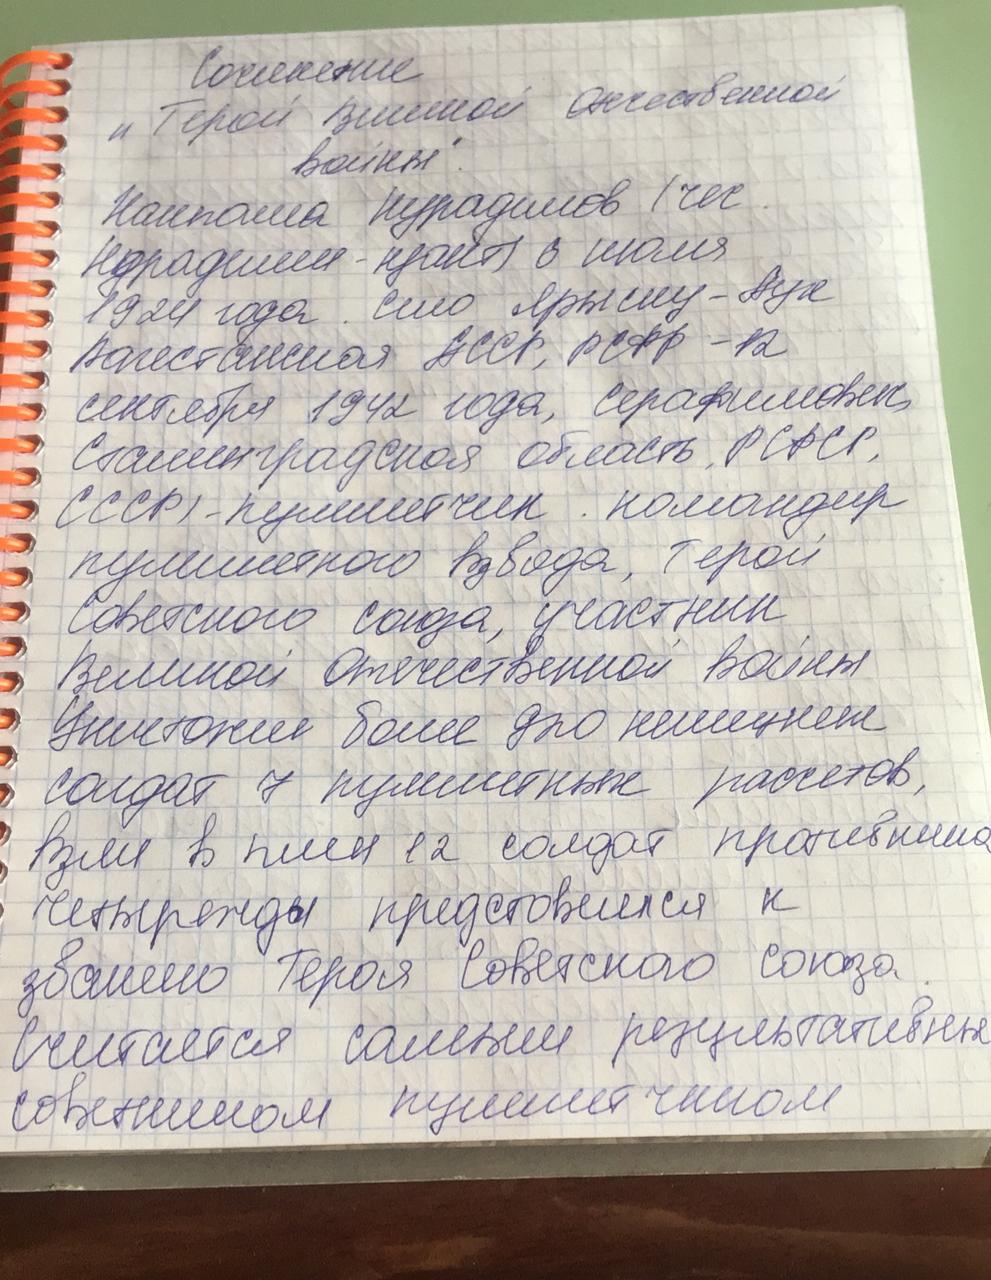 Сочинение
"Герой Великой Отечественной
войны".
Ханпаша Нурадилов (чек.
Нурадилин-
1924 года. село Ярыксу-Аух
Дагестанская АССР, РСФР -12
сентября 1942 года, Серафимовек,
Сталинградская область, РСФСР,
СССР)-пулиметчик. командир
пулиметного взвода, Герой
Советского союза, участник
Великой Отечественной войны
Уничтожил более 920 немецких
солдат 7 пулиметных расчетов,
взял в плен 12 солдат противника
Четырежды представился к
званию Героя Советского Союза.
Считается самым результативным
советником пулиметчиком